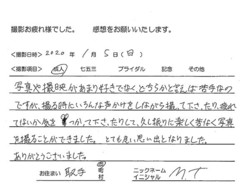 撮影お疲れ様でした。 感想をお願いいたします。
<撮影日時> 2020 / 1月 5 (日)
<撮影項目> 成人 七五三 ブライダル 記念 その他
写真や撮映があまり好きでなく、どちらかと言えば苦手なの
ですが、撮る時にいろんな声かけをしながら撮って下さったり、疲れ
てはいないか気をつかって下さったりして、久し振りに楽しく苦なく写真
を撮ることができました。とても良い思い出となりました。
ありがとうございました。
お住まい 取手 市 町 村 ニックネーム イニシャル M.T